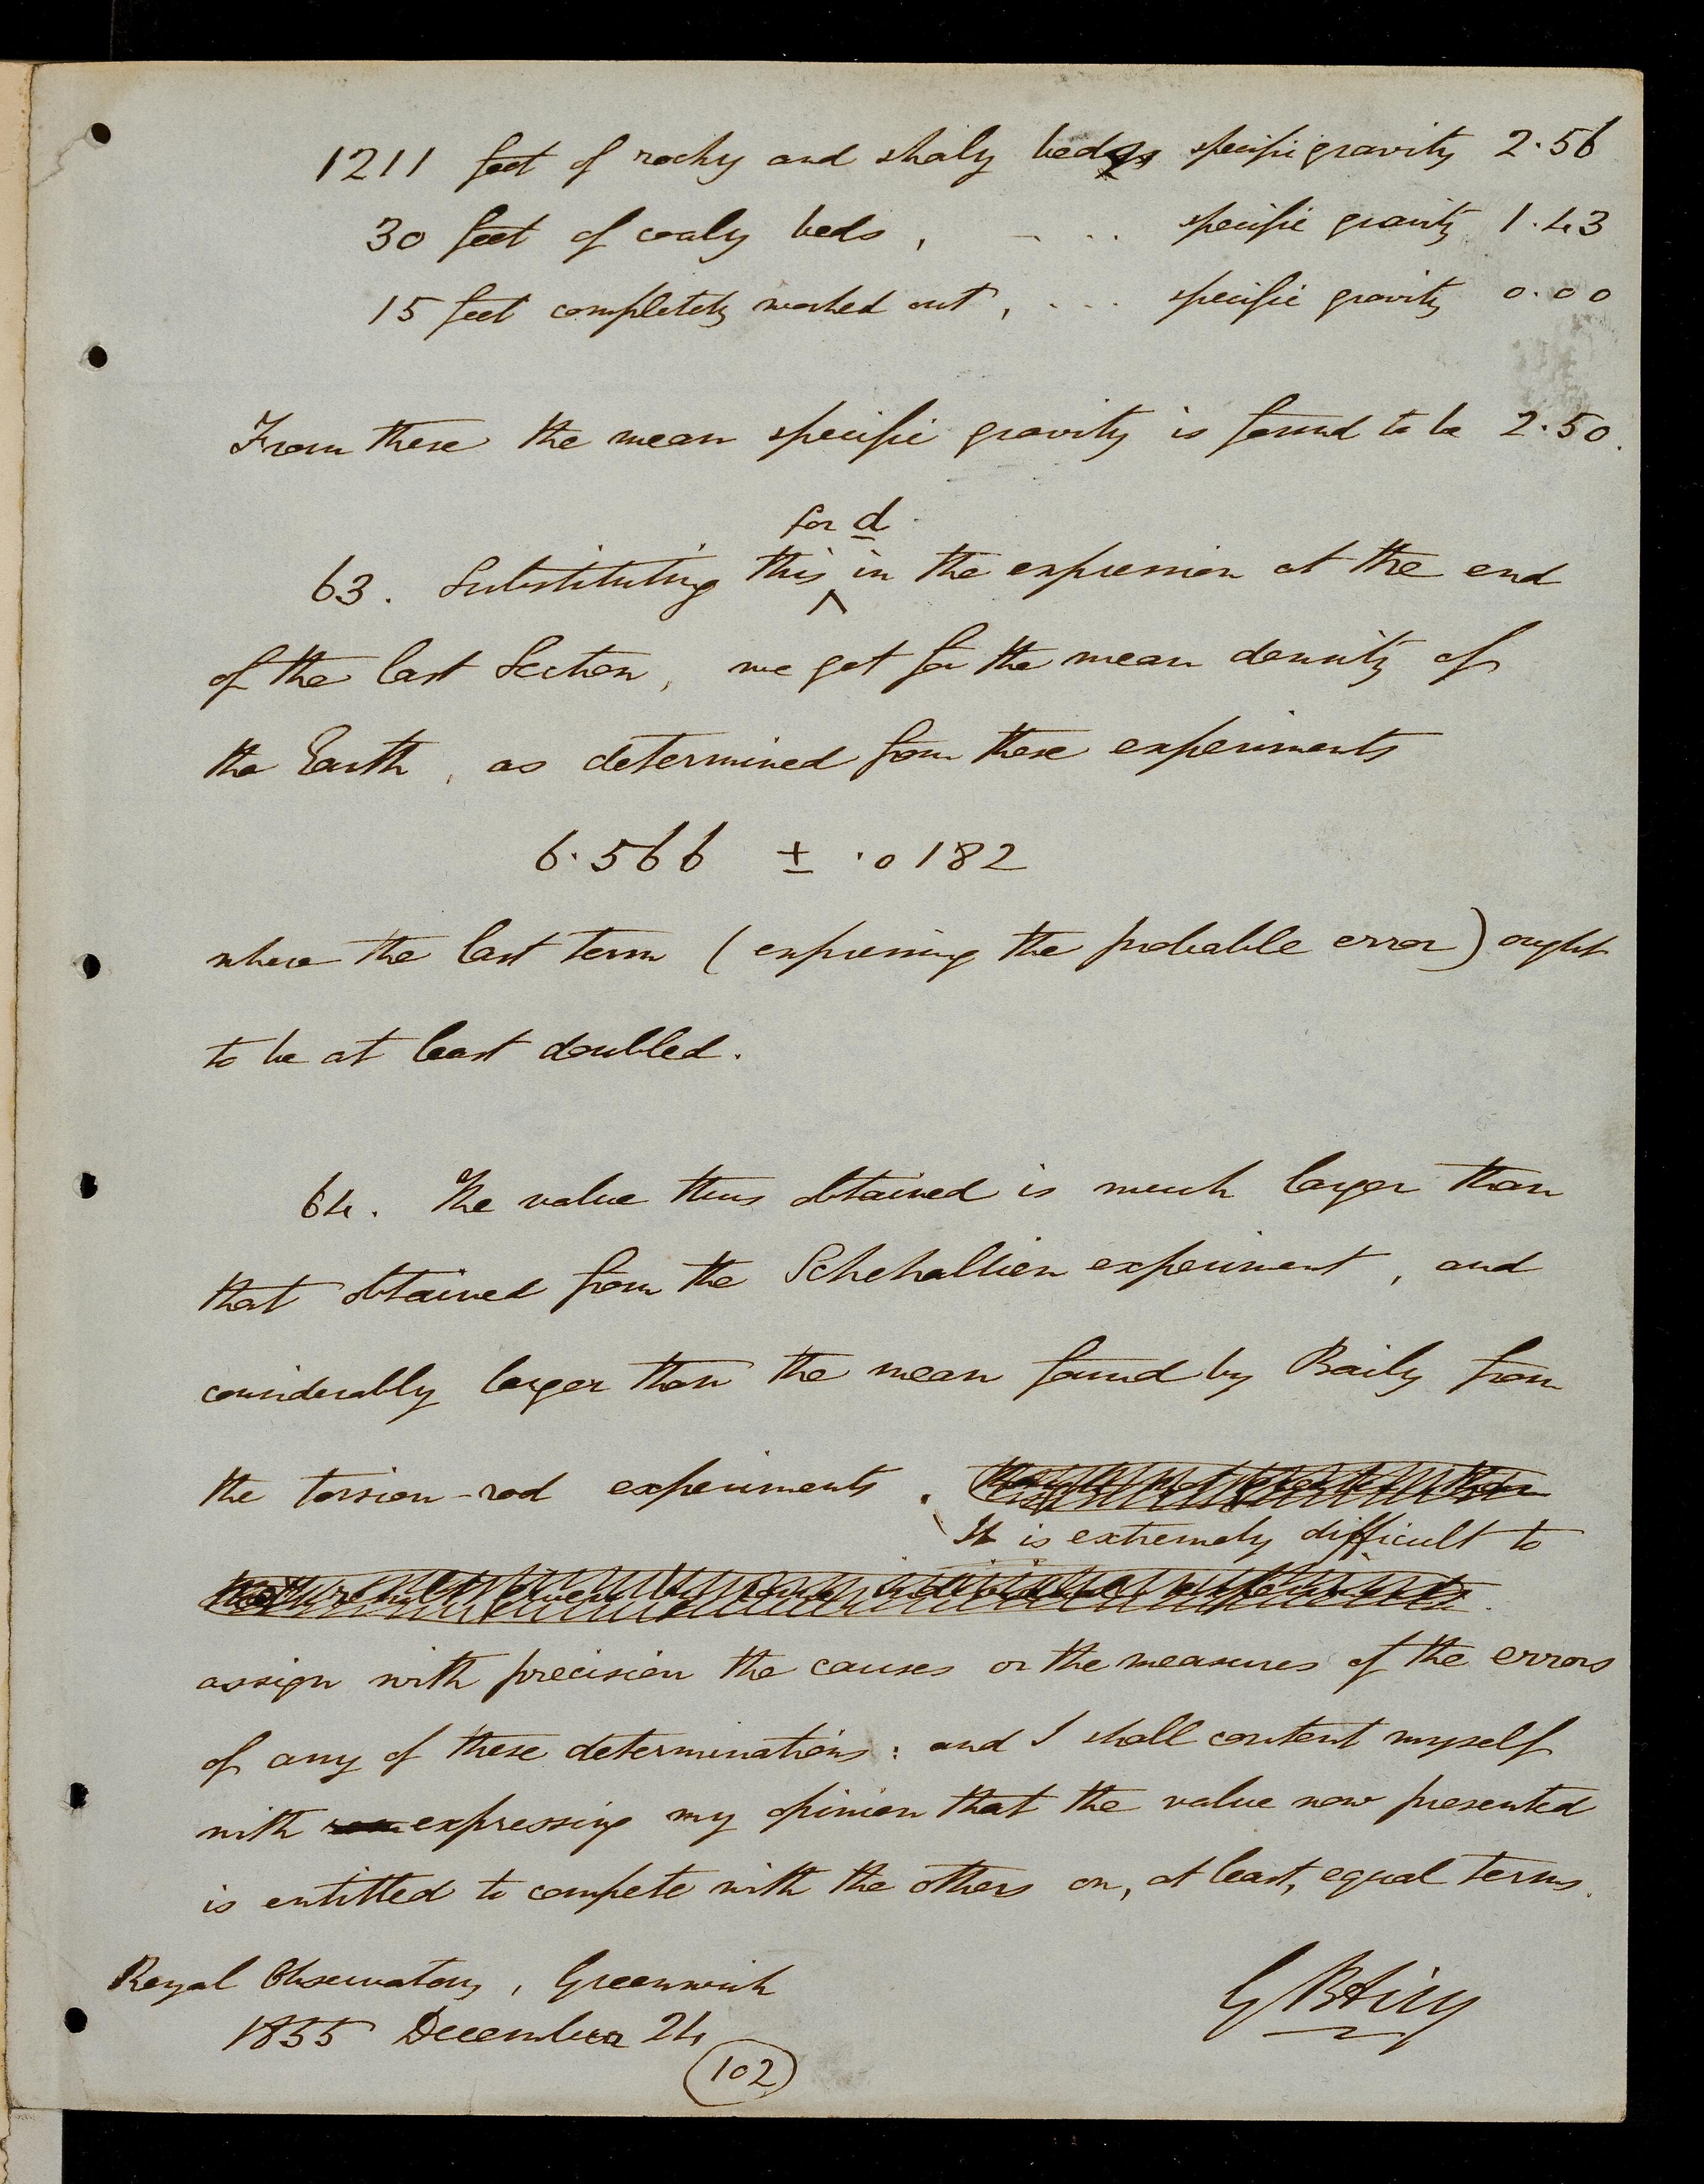 1211 feet of rocky and shaly beds specific gravity 2.56
30 feet of coaly beds, - . . . specific gravity 1.43
15 feet completely worked out, . . . . specific gravity 0.00
From these the mean specific gravity is found to be 2.50.
for d
63. Substituting this ^ in the expression at the end
of the last Section, we get for the mean density of
the Earth, as determined from these experiments
6.566 ± .0182
where the last term (expressing the probable error) ought
to be at least doubled.
64. The value thus obtained is much larger than
that obtained from the Schehallien experiment, and
considerably larger than the mean found by Baily from
the torsion-rod experiments. than
It is extremely difficult to
result given by some individual experiments.
assign with precision the causes or the measures of the errors
of any of these determinations: and I shall content myself
with expressing my opinion that the value now presented
is entitled to compete with the others on, at least, equal terms.
Royal Observatory, Greenwich
1855 December 24
G B Airy
102